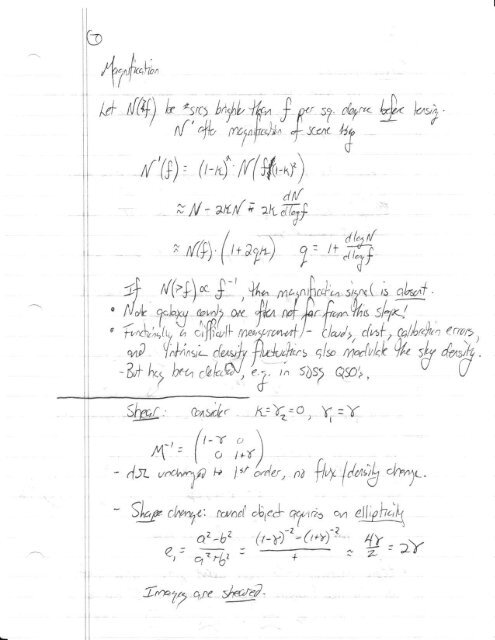 7
Magnification
Let N(>f) be # srcs brighter than f per sq. degree before lensing.
N' after magnification of scene by
N'(f) = (1-κ)² · N(f(1-κ)²)
≈ N - 2κN ∓ 2κ dN/dlogf
≈ N(f) · (1+2qκ) q = 1 + dlogN/dlogf
If N(>f) ∝ f⁻¹, then magnification signal is absent.
• Note galaxy counts are often not far from this slope!
• Functionally a difficult measurement - clouds, dust, calibration errors,
and intrinsic density fluctuations also modulate the sky density.
- But has been detected, e.g. in SDSS QSO's.
Shear: consider κ=γ₂=0, γ₁=γ
M⁻¹ = (1-γ 0
0 1+γ)
- dΩ unchanged to 1st order, no flux/density change.
- Shape change: round object acquires an ellipticity
e₁ = a²-b²/a²+b² = (1-γ)⁻²-(1+γ)⁻²/+ ≈ 4γ/2 = 2γ
Images are sheared.